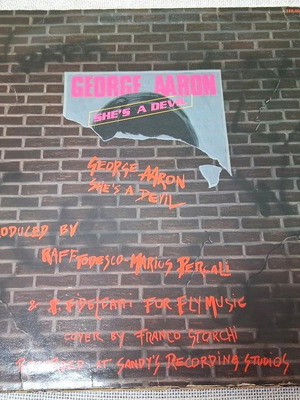 GEORGE AARON
SHE'S A DEVIL
GEORGE AARON
SHE'S A DEVIL
ODUCED BY
RAFF TODESCO - MARIUS PERCALI
& FOR FLY MUSIC
COVER BY FRANCO STORCHI
AT SANDY'S RECORDING STUDIOS